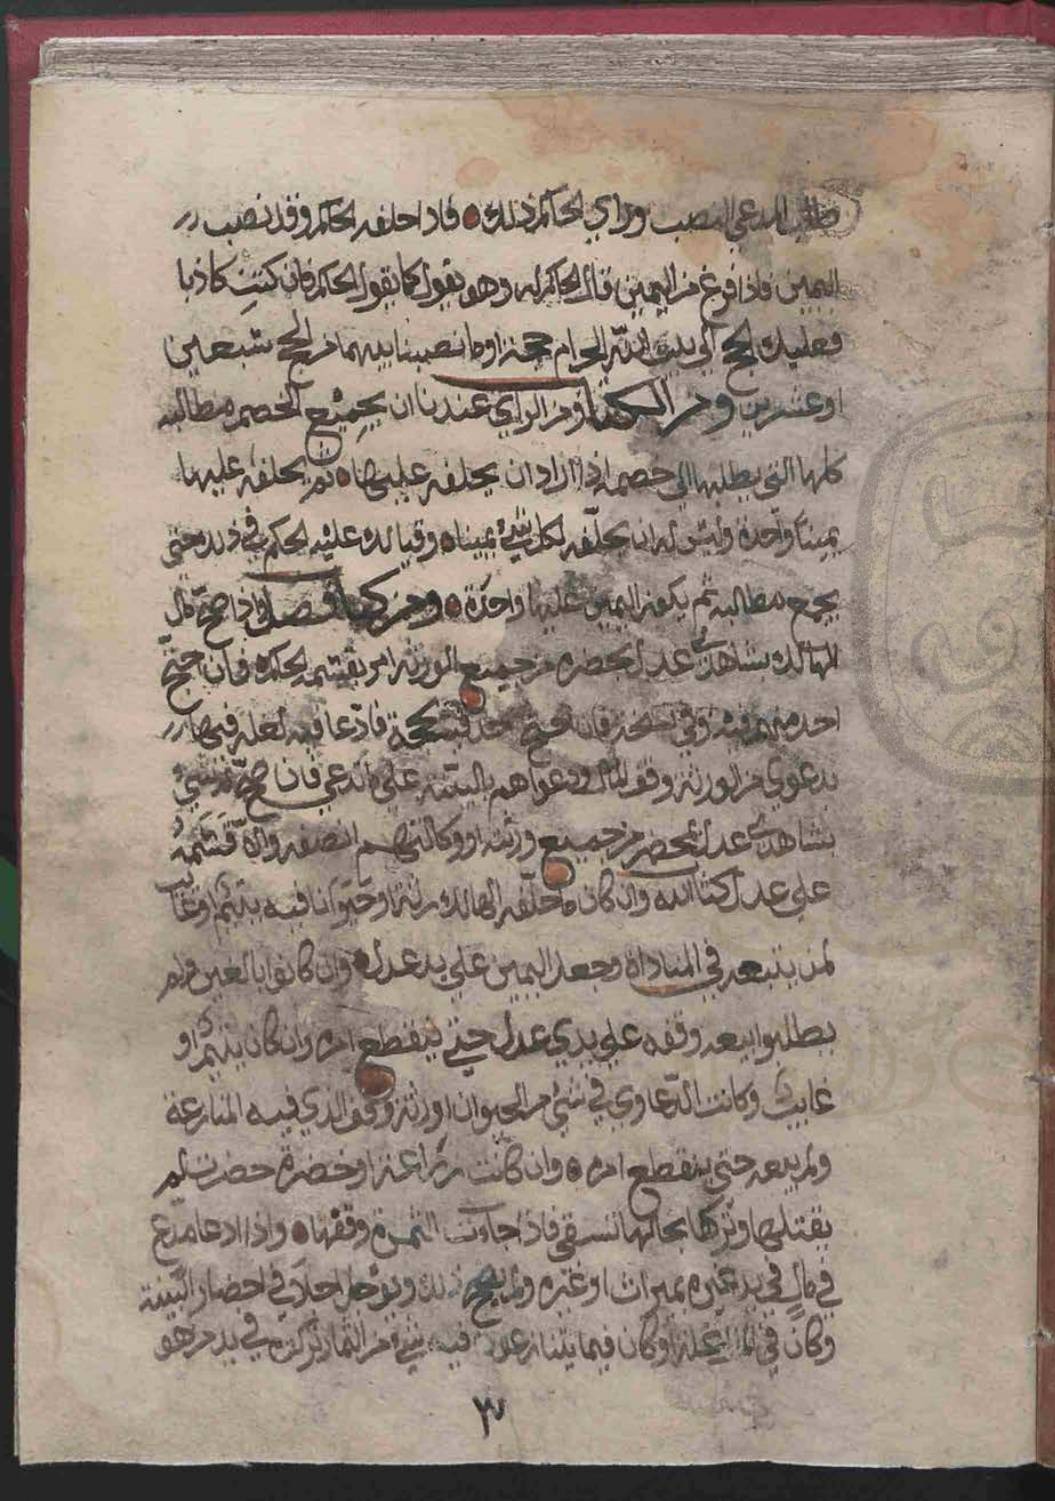 طلب المدعي النصب وراي الحاكم ذلك ه فاذا حلفه الحاكم وقد نصب
اليمين فاذا فرغ من اليمين قال الحاكم له وهو يقول كما يقول الحاكم فان كنت كاذبا
فعليك الحج الى بيت الله الحرام حجة او ما نصبنا بينهما من الحج سبعين
او عشرين ومن الكتاب ومن الراي عندنا ان يجميع الخصم مطالبه
كلها التي يطلبها الى خصمه اذا اراد ان يحلفه عليها ه ثم يحلفه عليها
يمينا واحدة وليس له ان يحلفه لكل شيء يمينا ه وقيا لده عليه الحكم في ذلك حتى
يجمع مطالبه ثم يكون اليمين عليها واحدة ه ومن كتاب فصل واذا صح مال
الهالك بشاهدي عدل بحضرة من جميع الورثة امر بقسمه الحاكم فان احتج
احد منهم فيه وفي فان احتج احد بحجة فادعا فيه لعله فيها
بدعوي من الورثة وقف المال ودعواهم بالبينة على ما ادعي فان صح شيء
بشاهدي عدل بحضر من جميع ورثته او وكالتهم انصفه والا قسمه
على عدل كتاب الله وان كان ما خلفه الهالك رثة او حيوانا فيه يتيم او غايب
لمن يتبعه في المناداة وجعل اليمين على يد عدل ه وان كانوا بالغين ولم
يطلبوا بيعه وقفه على يدي عدل حتى ينقطع امره وان كان يتيم او
غايب وكانت الدعاوي في شيء من الحيوان او رثة وقف الذي فيه المنازعة
ولم يبعه حتى ينقطع امره ه وان كانت زراعة او خضرة حضرت لم
يقتلها وتركها بحالها تسقى فاذا جاءت الثمرة وقفها ه واذا ادعا مدع
في مال في يد غيره بميراث او غيره ولم يصح ذلك ويؤجل اجلا في احضار البينة
وكان في المال غلة او كان فيما يتنازعون فيه شيء من الثمار تركه في يد من هو
٣